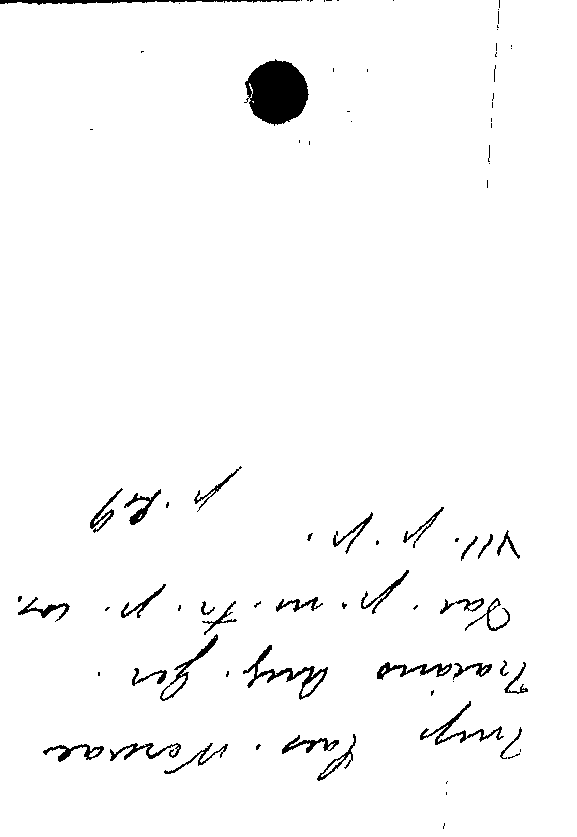 Imp. Caes. Nervae
Traiano Aug. Ger.
Dac. p. m. tr. p. cos.
VII. p. p.
p. 29